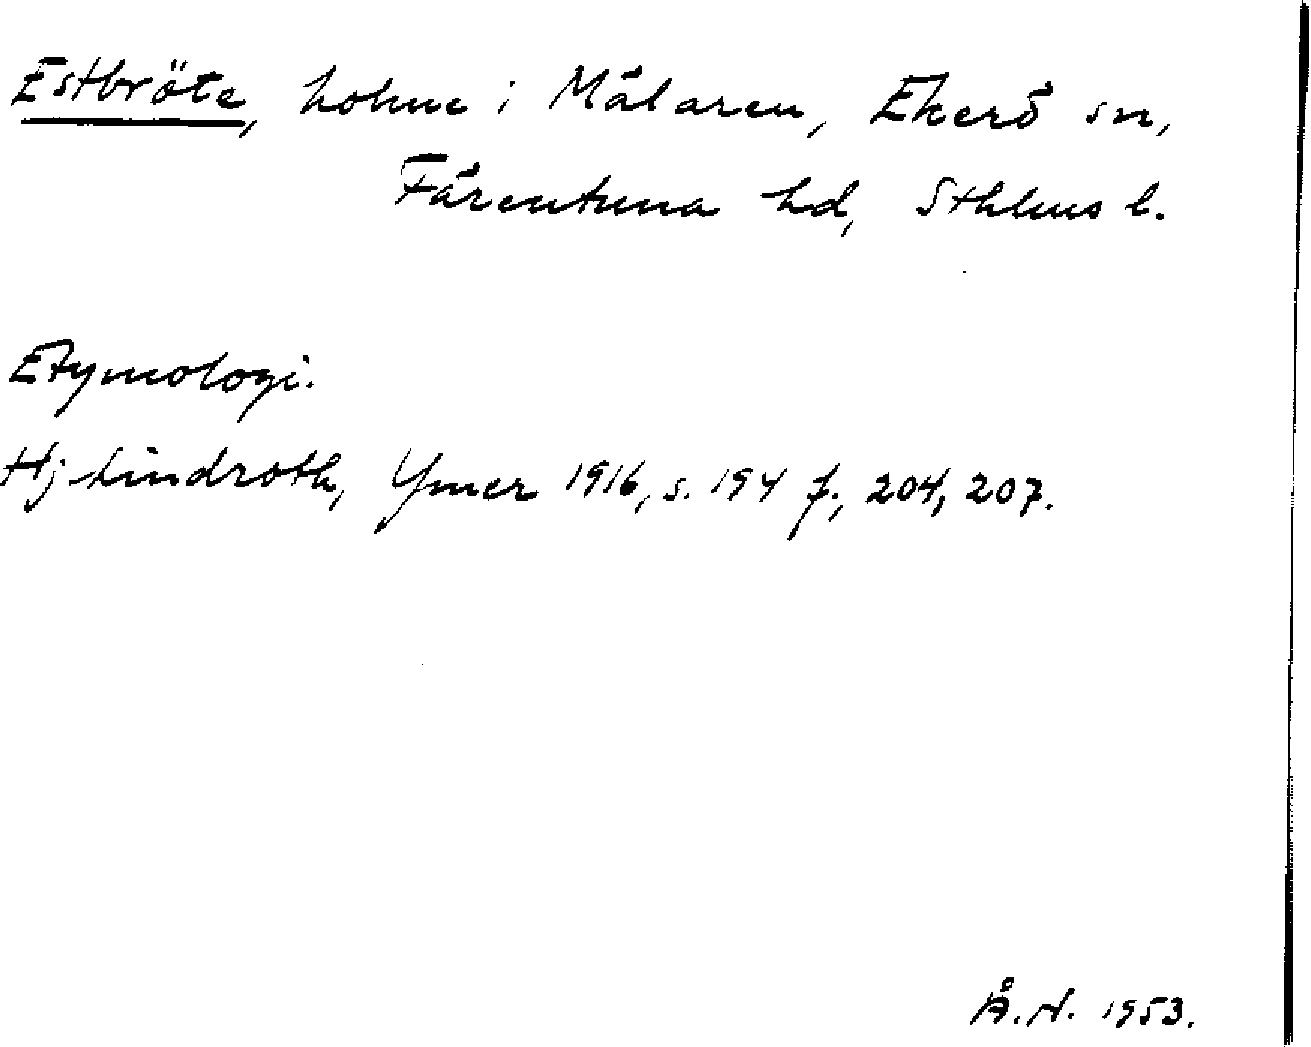 Estbröte, holme i Mälaren, Ekerö sn,
Färentuna hd, Sthlms l.
Etymologi.
Hj Lindroth, Ymer 1916, s. 194 f., 204, 207.
Å.N. 1953.